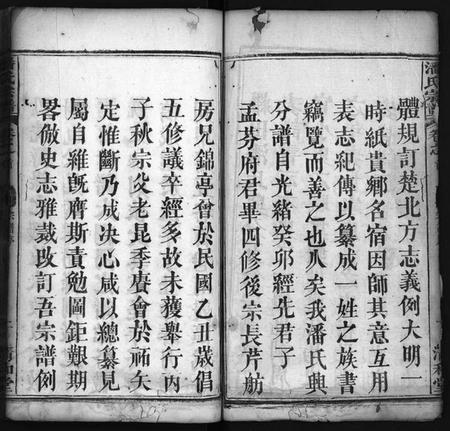 體規訂楚北方志義例大明一
時紙貴鄉名宿因師其意互用
表志紀傳以纂成一姓之族書
竊覽而善之也久矣我潘氏興
分譜自光緒癸卯經先君子
孟芬府君畢四修後宗長芹舫
房兄錦亭曾於民國乙丑歲倡
五修議卒經多故未獲舉行丙
子秋宗父老昆季賡會於祠矢
定惟斷乃成決心咸以總纂見
屬自維旣膺斯責勉圖鉅艱期
畧倣史志雅裁攺訂吾宗譜例